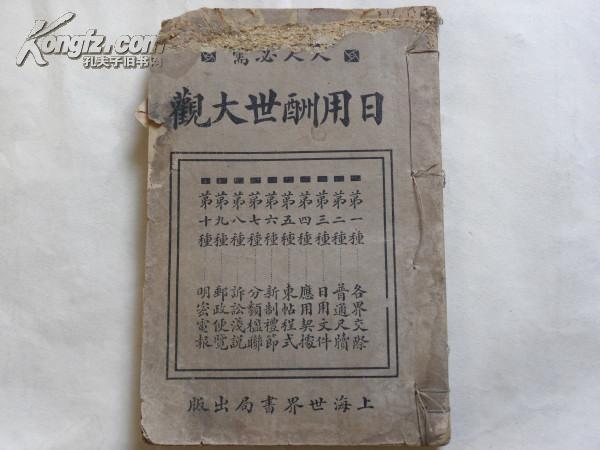 Kongfz.com
孔夫子旧书网
人人必需
日用酬世大觀
第一種 各界交際
第二種 普通尺牘
第三種 日用文件
第四種 應用契據
第五種 柬帖程式
第六種 新制禮節
第七種 分類楹聯
第八種 訴訟淺説
第九種 郵政便覽
第十種 明密電報
上海世界書局出版